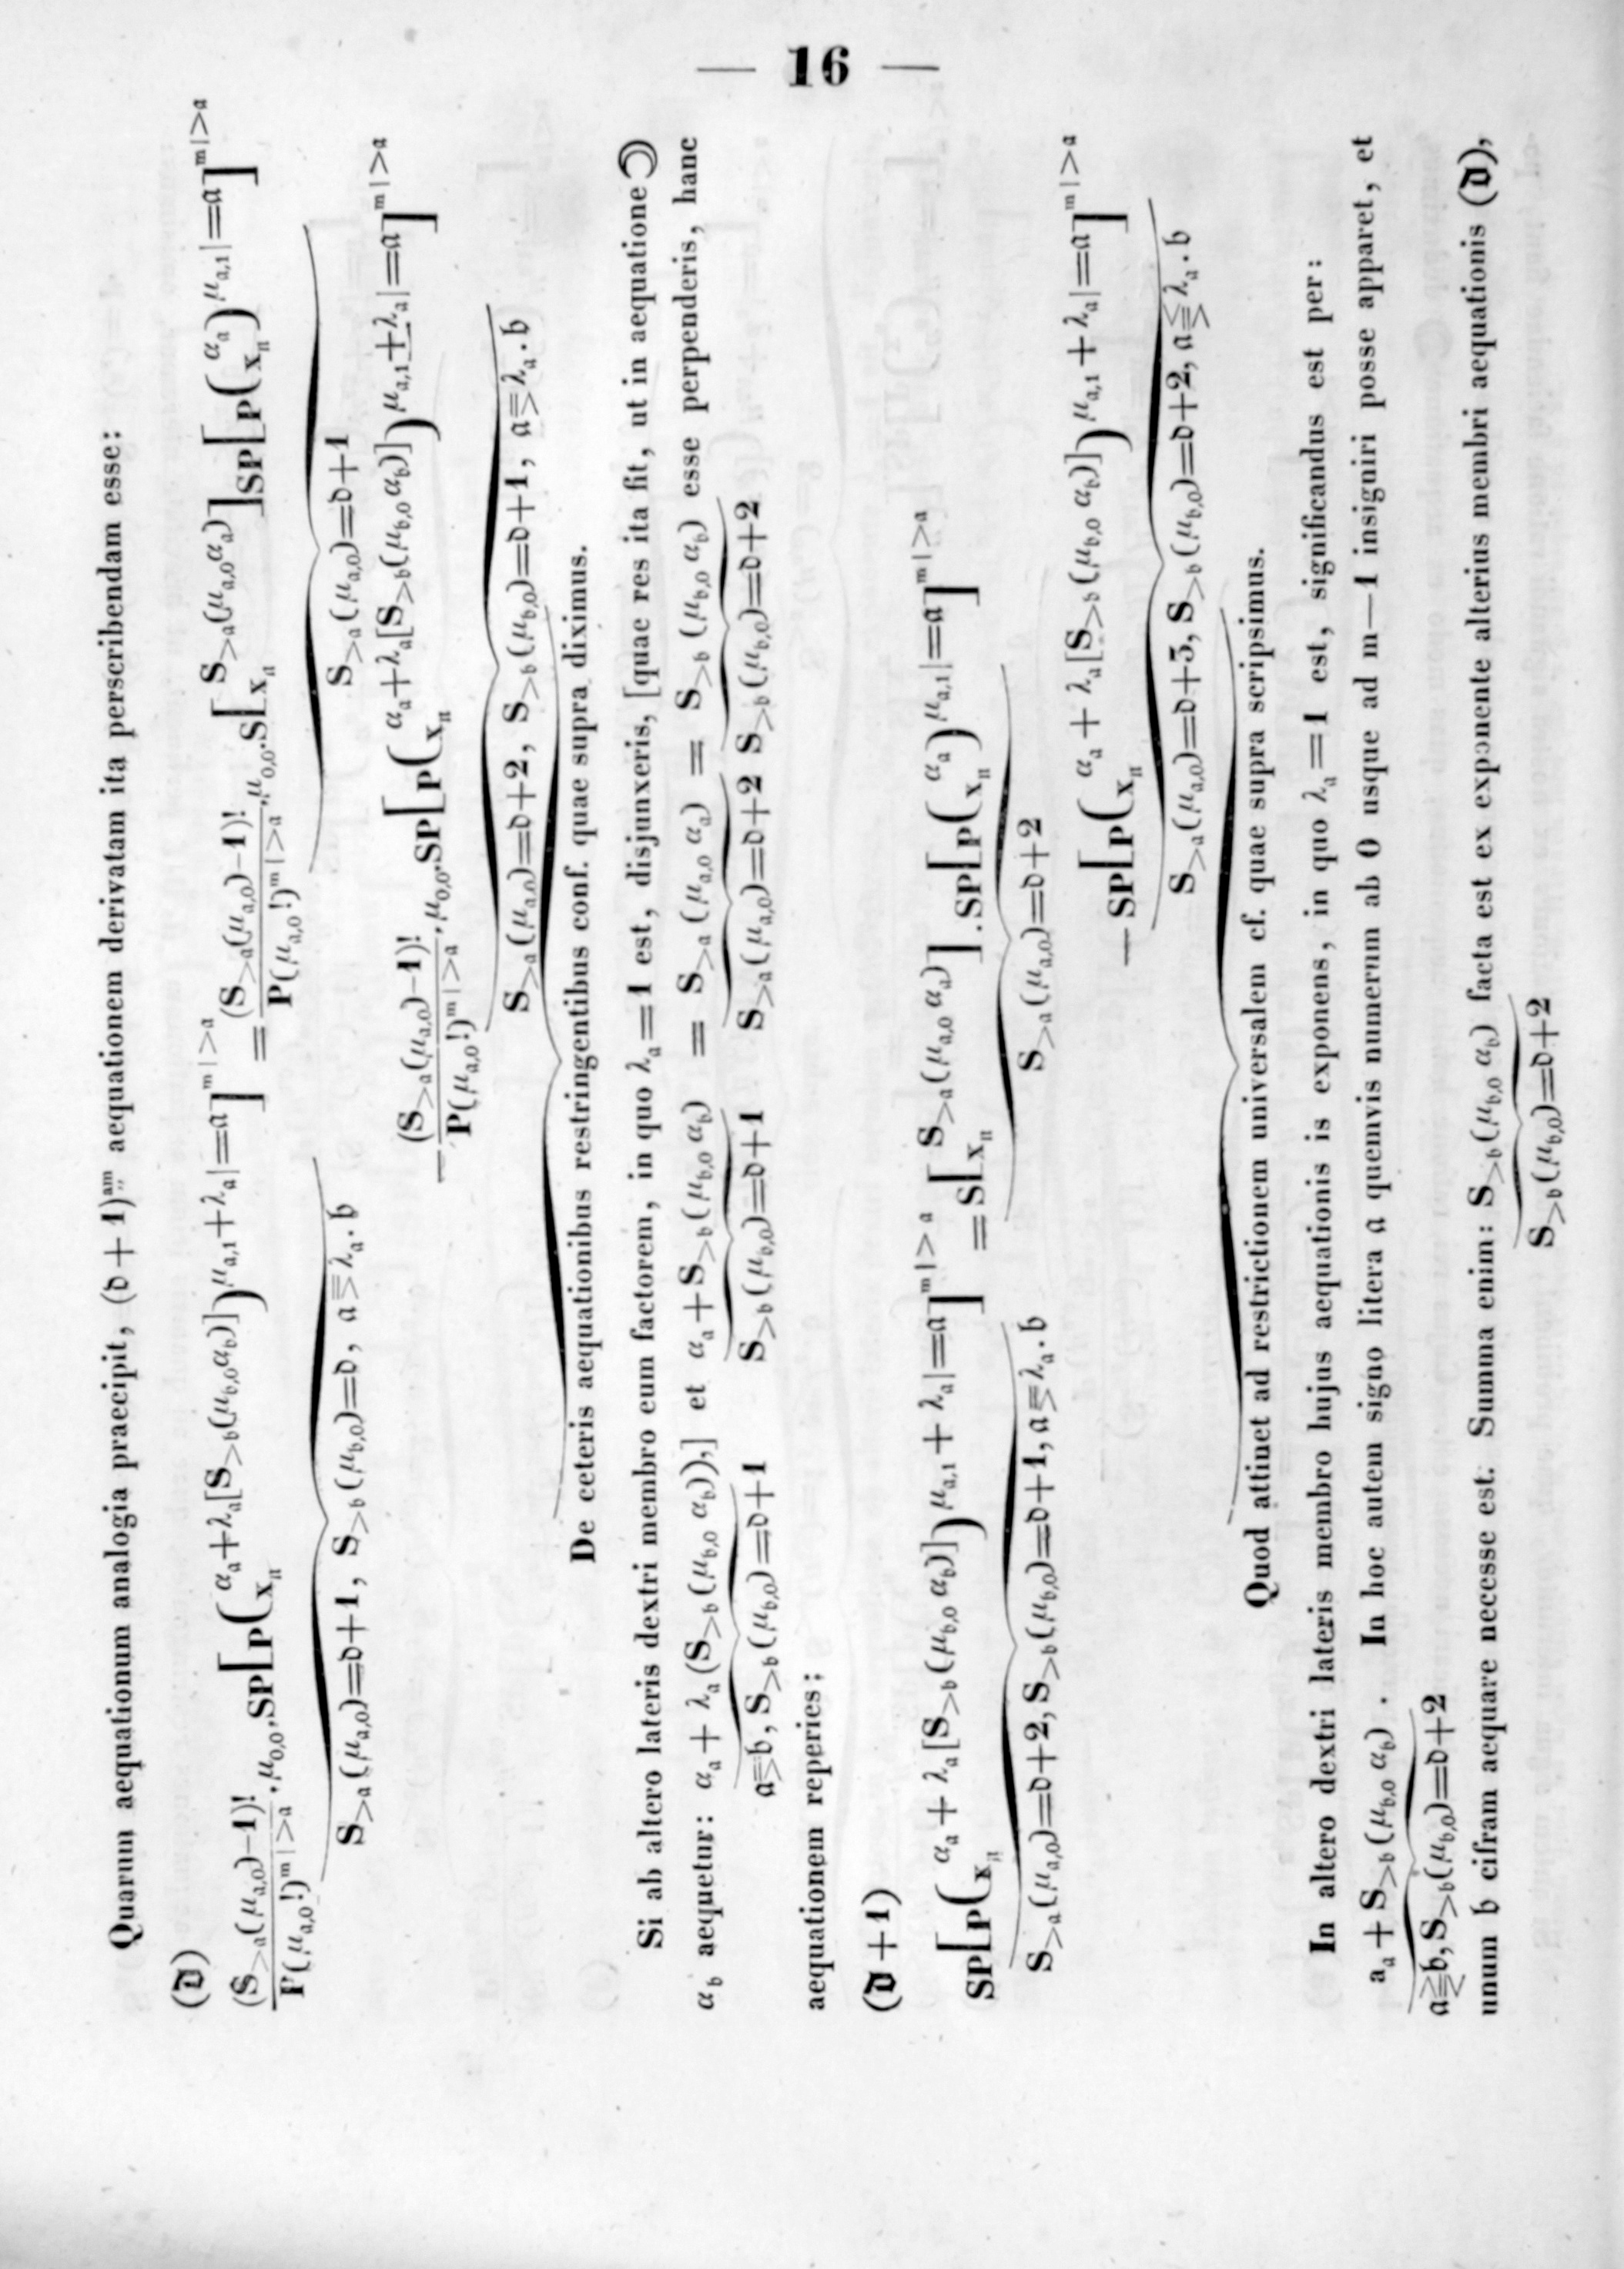 — 16 —
Quarum aequationum analogia praecipit, (𝔡 + 1)^{am} aequationem derivatam ita perscribendam esse:
(𝕯)
(S_{>a}(μ_{a,0})−1)! / P(μ_{a,0}!)^{m|>a} · μ_{0,0}.SP[P(^{α_a+λ_a[S_{>b}(μ_{b,0}α_b)]}_{x_n})^{μ_{a,1}+λ_a|=a}]^{m|>a} = (S_{>a}(μ_{a,0})−1)! / P(μ_{a,0}!)^{m|>a} · μ_{0,0}.S[^{S_{>a}(μ_{a,0}α_a)}_{x_n}]SP[P(^{α_a}_{x_n})^{μ_{a,1}|=a}]^{m|>a}
S_{>a}(μ_{a,0})=𝔡+1, S_{>b}(μ_{b,0})=𝔡, a≧λ_a.b S_{>a}(μ_{a,0})=𝔡+1
−(S_{>a}(μ_{a,0})−1)! / P(μ_{a,0}!)^{m|>a} · μ_{0,0}.SP[P(^{α_a+λ_a[S_{>b}(μ_{b,0}α_b)]}_{x_n})^{μ_{a,1}+λ_a|=a}]^{m|>a}
S_{>a}(μ_{a,0})=𝔡+2, S_{>b}(μ_{b,0})=𝔡+1, a≧λ_a.b
De ceteris aequationibus restringentibus conf. quae supra diximus.
Si ab altero lateris dextri membro eum factorem, in quo λ_a=1 est, disjunxeris, [quae res ita fit, ut in aequatione ☽
α_b aequetur: α_a + λ_a(S_{>b}(μ_{b,0} α_b)),] et α_a+S_{>b}(μ_{b,0} α_b) = S_{>a}(μ_{a,0} α_a) = S_{>b}(μ_{b,0} α_b) esse perpenderis, hanc
a≧b, S_{>b}(μ_{b,0})=𝔡+1 S_{>b}(μ_{b,0})=𝔡+1 S_{>a}(μ_{a,0})=𝔡+2 S_{>b}(μ_{b,0})=𝔡+2
aequationem reperies;
(𝕯+1)
SP[P(^{α_a + λ_a[S_{>b}(μ_{b,0} α_b)]}_{x_n})^{μ_{a,1} + λ_a|=a}]^{m|>a} = S[^{S_{>a}(μ_{a,0} α_a)}_{x_n}].SP[P(^{α_a}_{x_n})^{μ_{a,1}|=a}]^{m|>a}
S_{>a}(μ_{a,0})=𝔡+2, S_{>b}(μ_{b,0})=𝔡+1, a≧λ_a.b S_{>a}(μ_{a,0})=𝔡+2
—SP[P(^{α_a + λ_a[S_{>b}(μ_{b,0} α_b)]}_{x_n})^{μ_{a,1}+λ_a|=a}]^{m|>a}
S_{>a}(μ_{a,0})=𝔡+3, S_{>b}(μ_{b,0})=𝔡+2, a≧λ_a.b
Quod attinet ad restrictionem universalem cf. quae supra scripsimus.
In altero dextri lateris membro hujus aequationis is exponens, in quo λ_a=1 est, significandus est per:
a_a + S_{>b}(μ_{b,0} α_b) . In hoc autem signo litera a quemvis numerum ab 0 usque ad m—1 insigniri posse apparet, et
a⪌b, S_{>b}(μ_{b,0})=𝔡+2
unum b cifram aequare necesse est. Summa enim: S_{>b}(μ_{b,0} α_b) facta est ex exponente alterius membri aequationis (𝕯),
S_{>b}(μ_{b,0})=𝔡+2